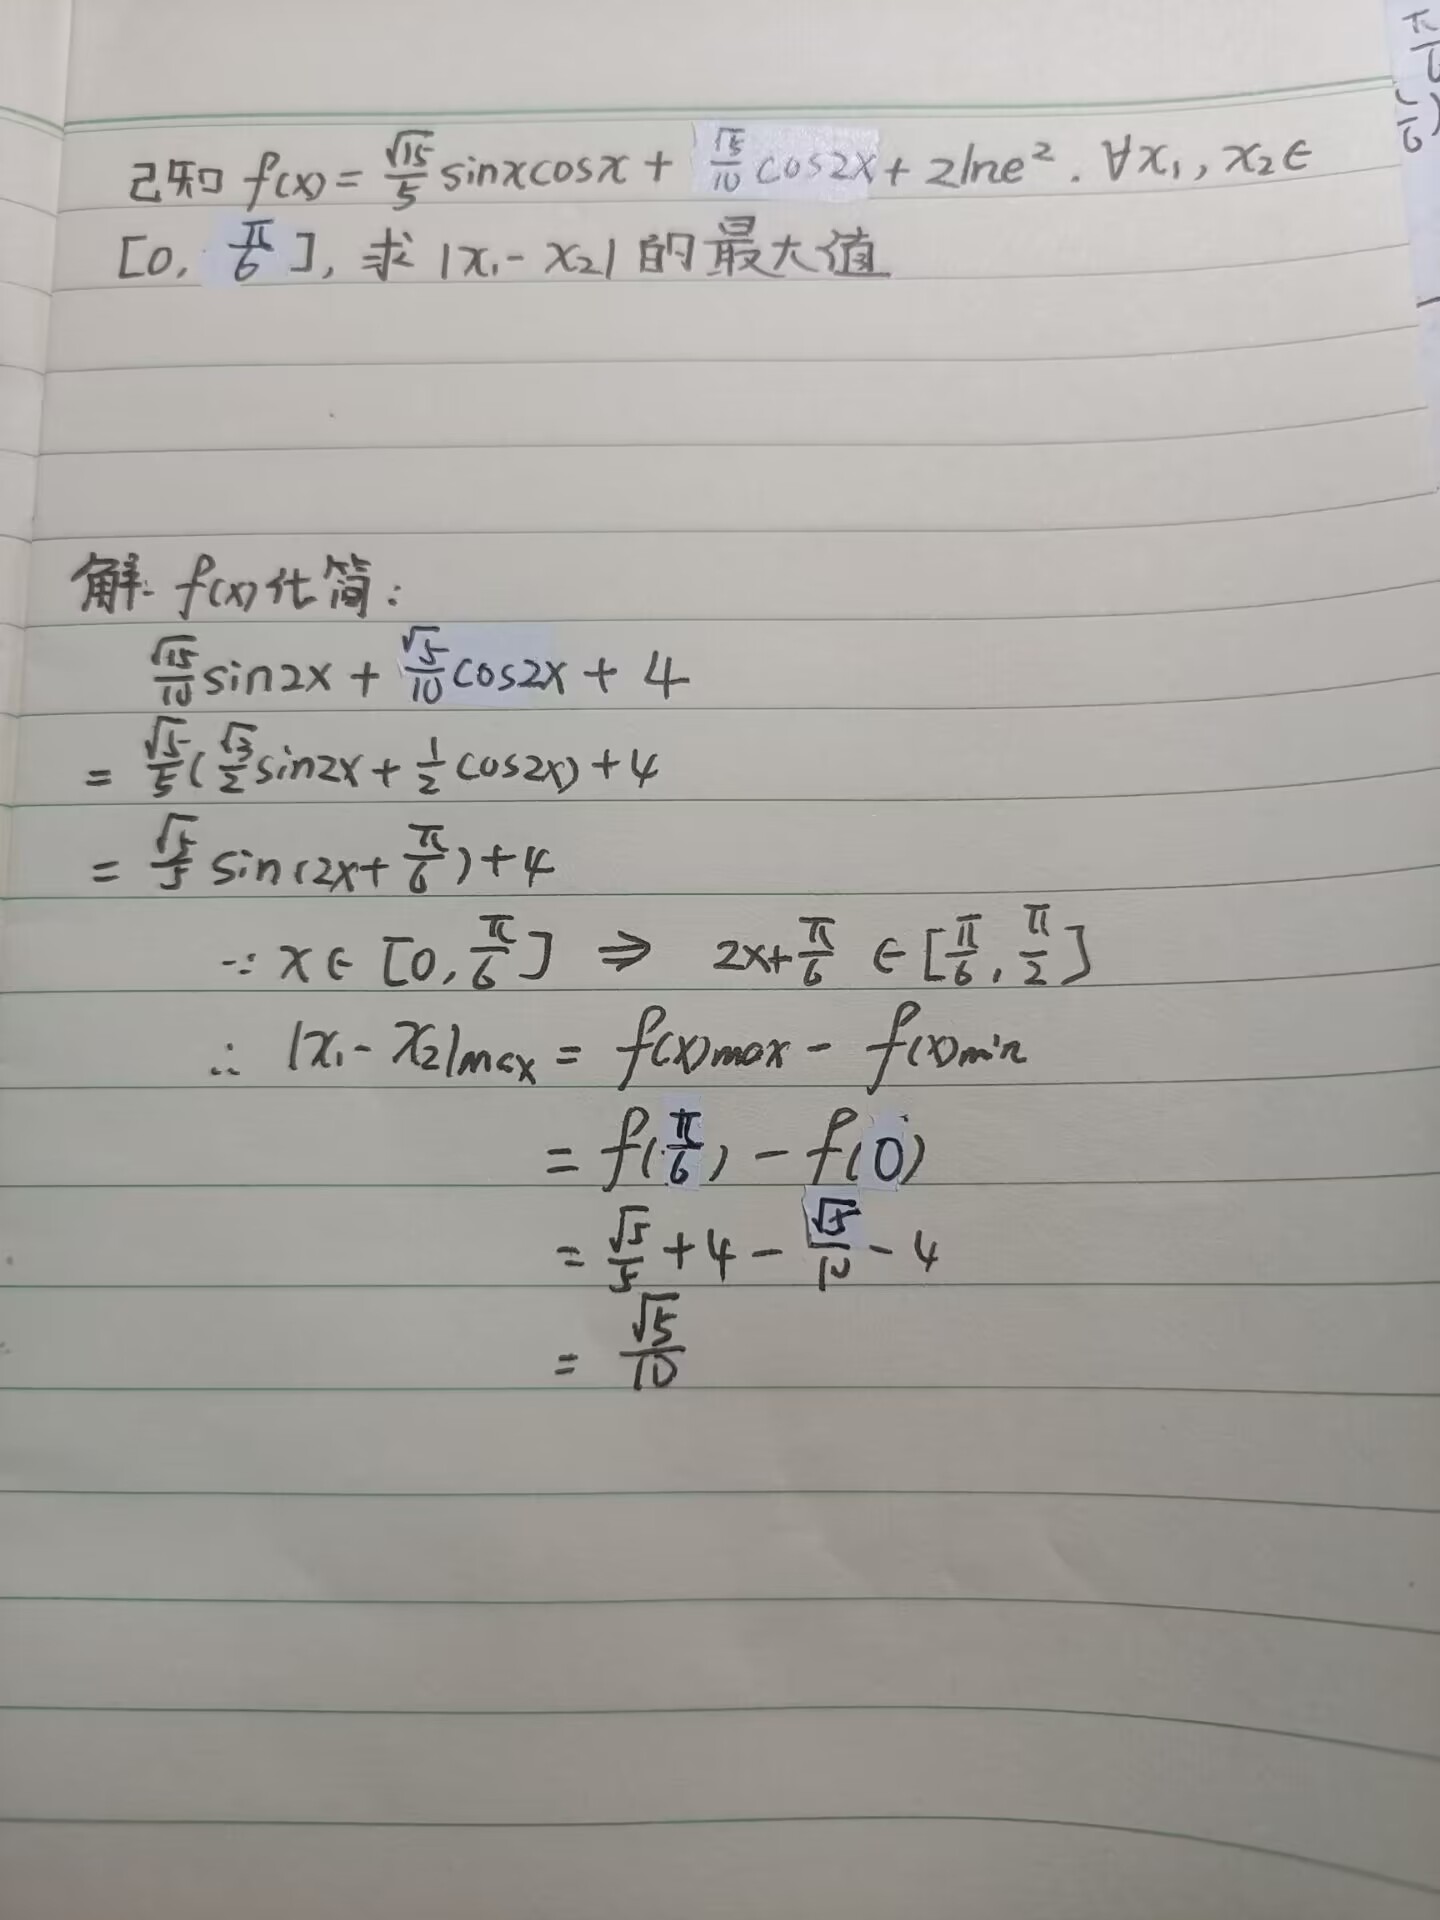 已知 f(x) = √15/5 sinxcosx + √5/10 cos2x + 2lne². ∀x₁, x₂∈
[0, π/6], 求 |x₁ - x₂| 的最大值
解: f(x)化简:
√15/10 sin2x + √5/10 cos2x + 4
= √5/5 (√3/2 sin2x + 1/2 cos2x) + 4
= √5/5 sin(2x + π/6) + 4
∵ x∈ [0, π/6] ⇒ 2x+π/6 ∈ [π/6, π/2]
∴ |x₁ - x₂|max = f(x)max - f(x)min
= f(π/6) - f(0)
= √5/5 + 4 - √5/10 - 4
= √5/10